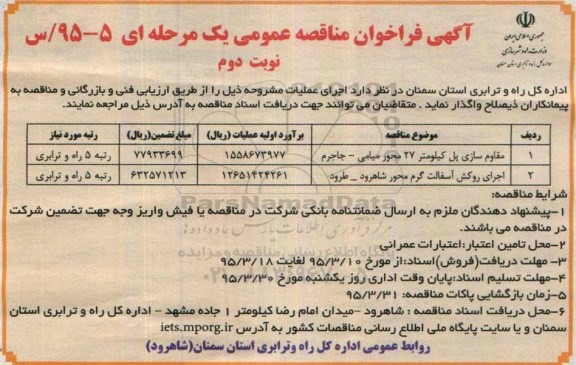 آگهی فراخوان مناقصه عمومی یک مرحله ای ۵-۹۵/س
نوبت دوم
جمهوری اسلامی ایران
وزارت راه و شهرسازی
اداره کل راه و ترابری استان سمنان در نظر دارد اجرای عملیات مشروحه ذیل را از طریق ارزیابی فنی و بازرگانی و مناقصه به
پیمانکاران ذیصلاح واگذار نماید . متقاضیان می توانند جهت دریافت اسناد مناقصه به آدرس ذیل مراجعه نمایند.
ردیف موضوع مناقصه برآورد اولیه عملیات (ریال) مبلغ تضمین(ریال) رتبه مورد نیاز
۱ مقاوم سازی پل کیلومتر ۲۷ محور میامی - جاجرم ۱۵۵۸۶۷۳۹۷۷ ۷۷۹۳۳۶۹۹ رتبه ۵ راه و ترابری
۲ اجرای روکش آسفالت گرم محور شاهرود _ طرود ۱۲۶۵۱۴۲۴۲۶۱ ۶۳۲۵۷۱۲۱۳ رتبه ۵ راه و ترابری
شرایط مناقصه:
۱-پیشنهاد دهندگان ملزم به ارسال ضمانتنامه بانکی شرکت در مناقصه یا فیش واریز وجه جهت تضمین شرکت
در مناقصه می باشند.
۲-محل تامین اعتبار:اعتبارات عمرانی
۳- مهلت دریافت(فروش)اسناد:از مورخ ۹۵/۳/۱۰ لغایت ۹۵/۳/۱۸
۴-مهلت تسلیم اسناد:پایان وقت اداری روز یکشنبه مورخ ۹۵/۳/۳۰
۵-زمان بازگشایی پاکات مناقصه: ۹۵/۳/۳۱
۶-محل دریافت اسناد مناقصه : شاهرود -میدان امام رضا کیلومتر ۱ جاده مشهد - اداره کل راه و ترابری استان
سمنان و یا سایت پایگاه ملی اطلاع رسانی مناقصات کشور به آدرس iets.mporg.ir
روابط عمومی اداره کل راه وترابری استان سمنان(شاهرود)
ParsNamadData